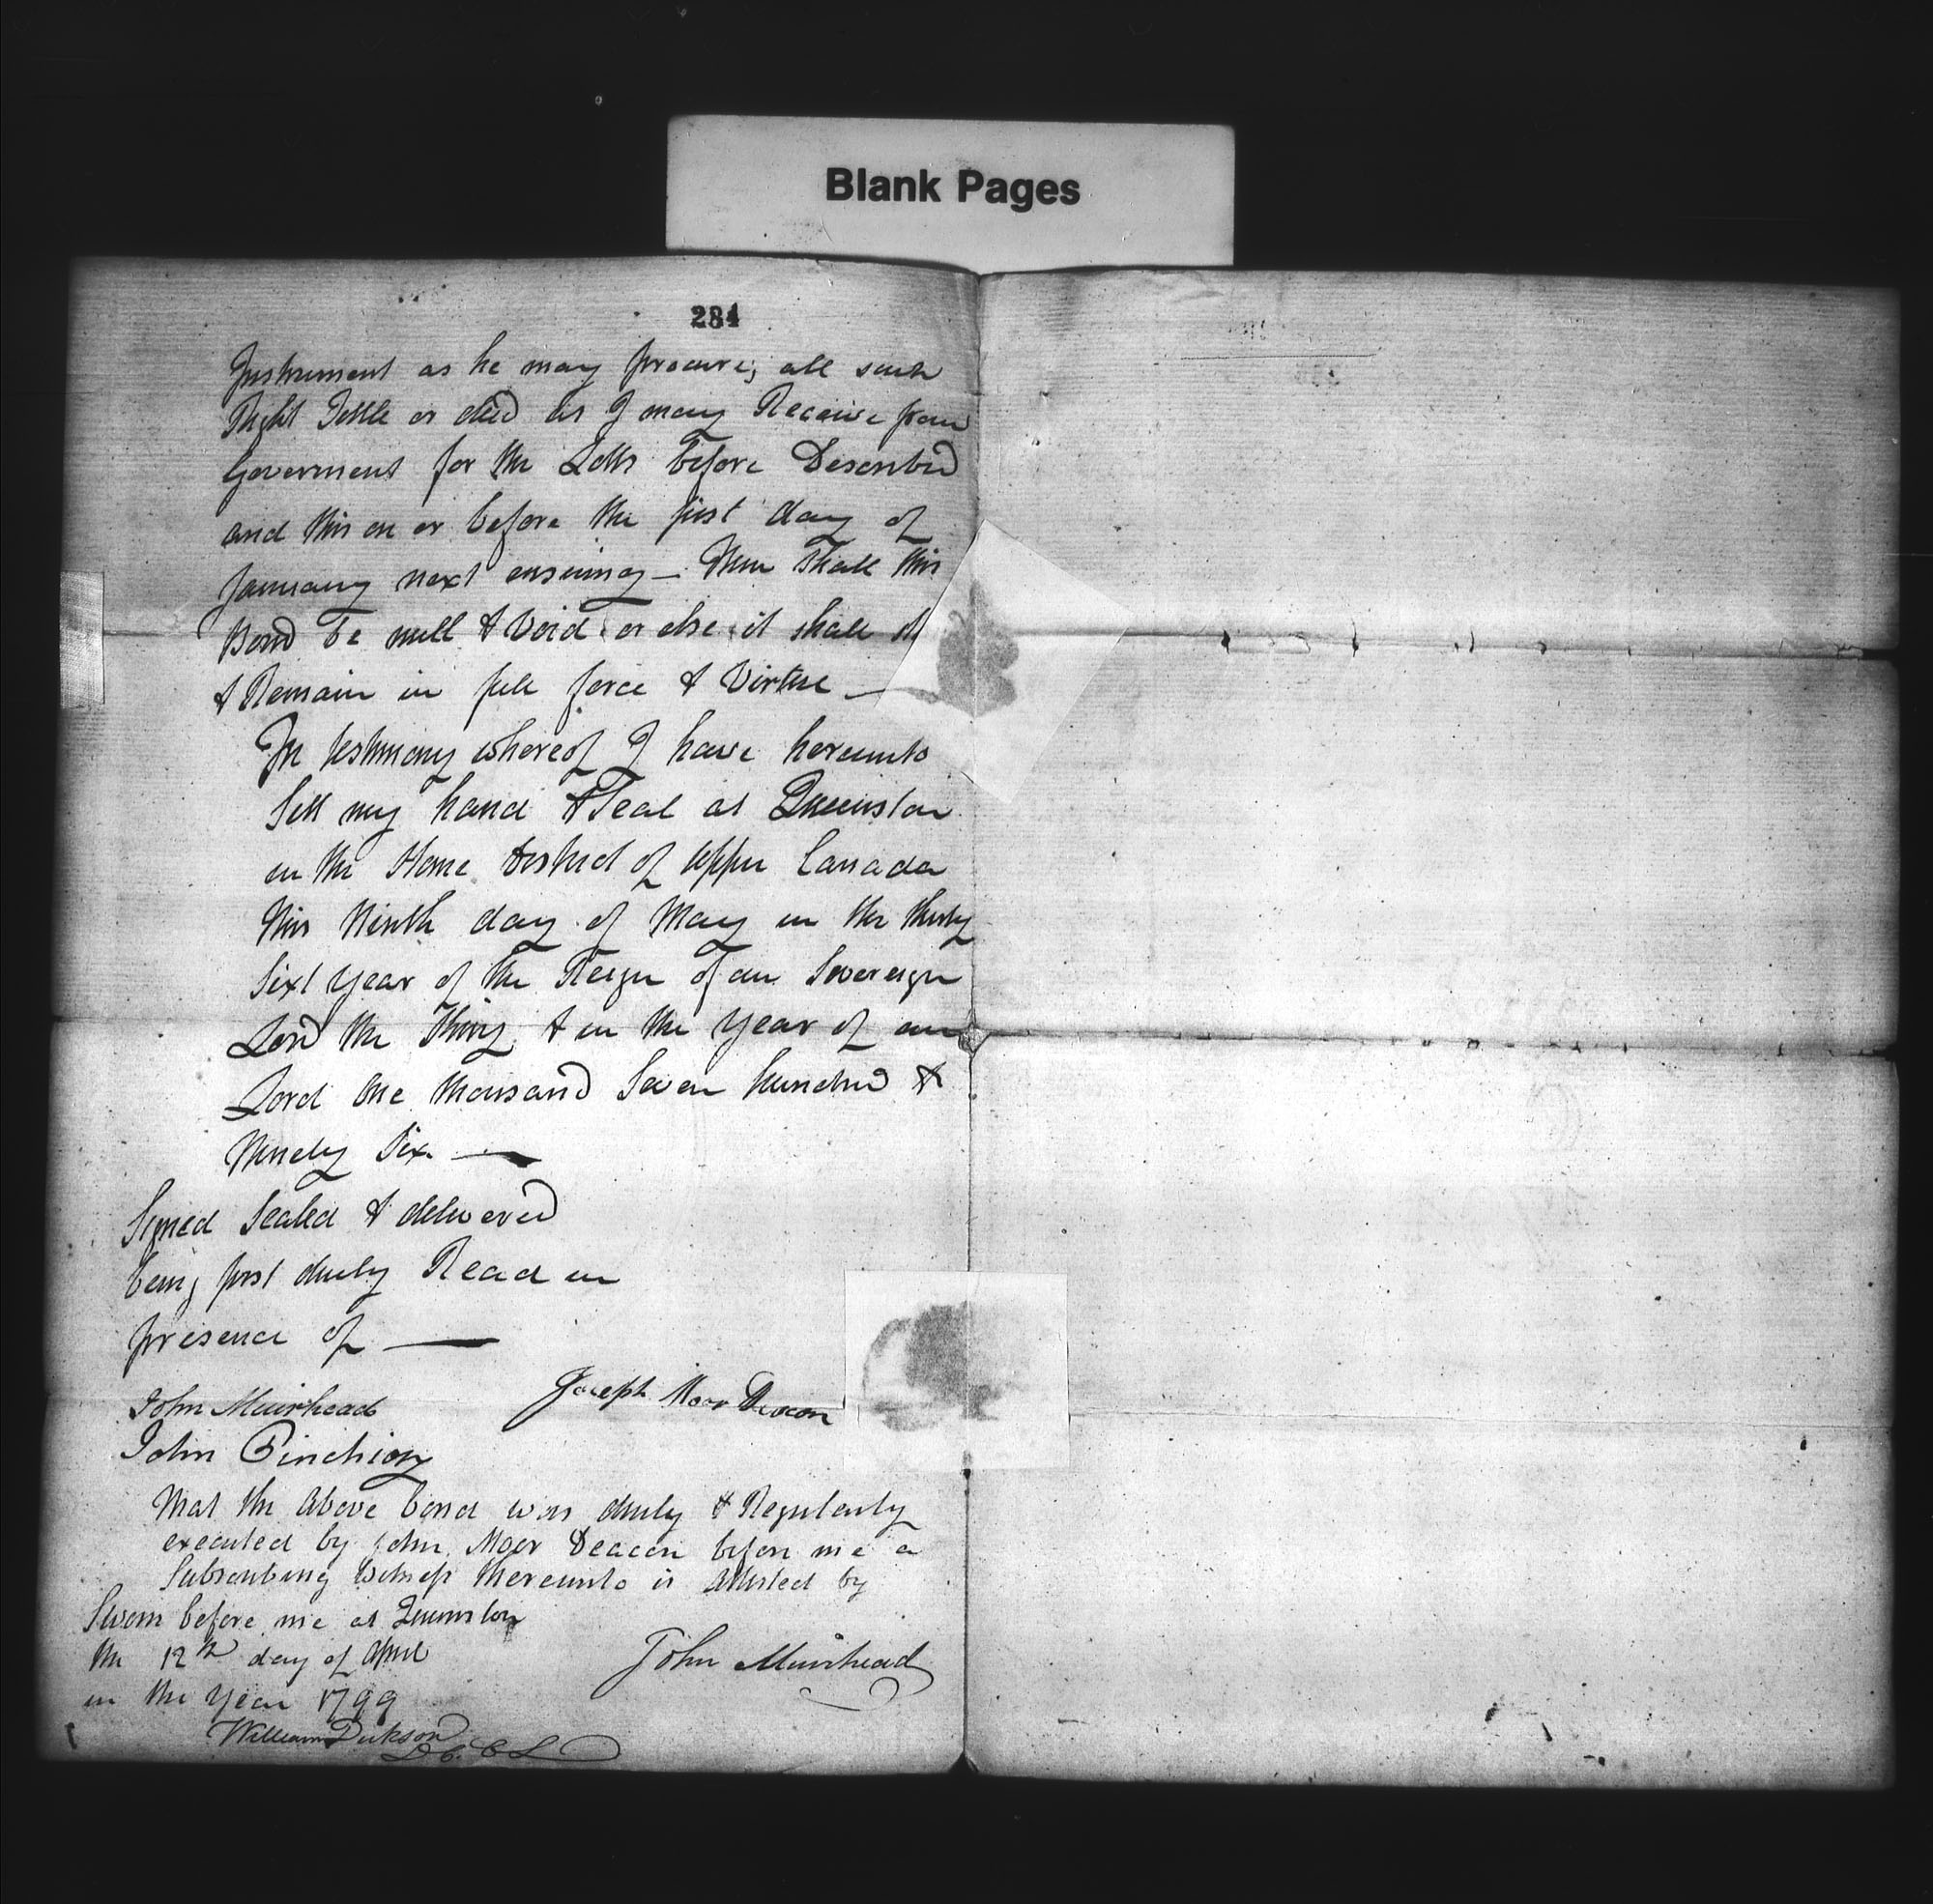 Blank Pages
284
Instrument as he may procure; all such
Right Tittle or deed as I may Receive from
Goverment for the Lotts before Described
and this on or before the first day of
January next ensuing — Then shall this
Bond be null & Void or else it shall st
& Remain in full force & Virtue —
In testimony whereof I have hereunto
Sett my hand & Seal at Queenston
in the Home District of Upper Canada
this Ninth day of May in the thirty
Sixt year of the Reign of our Sovereign
Lord the King & in the year of our
Lord One thousand Seven hundred &
Ninety Six. —
Signed Sealed & delivered
being first duely Read in
presence of —
John Muirhead
Joseph Moor Deacon
John
That the above bond was duely & Regularly
executed by John Moor Deacon before me a
Subscribing Witness thereunto is attested by
Sworn before me at Queenston
the 12th day of April
John Muirhead
in the year 1799
William Dickson